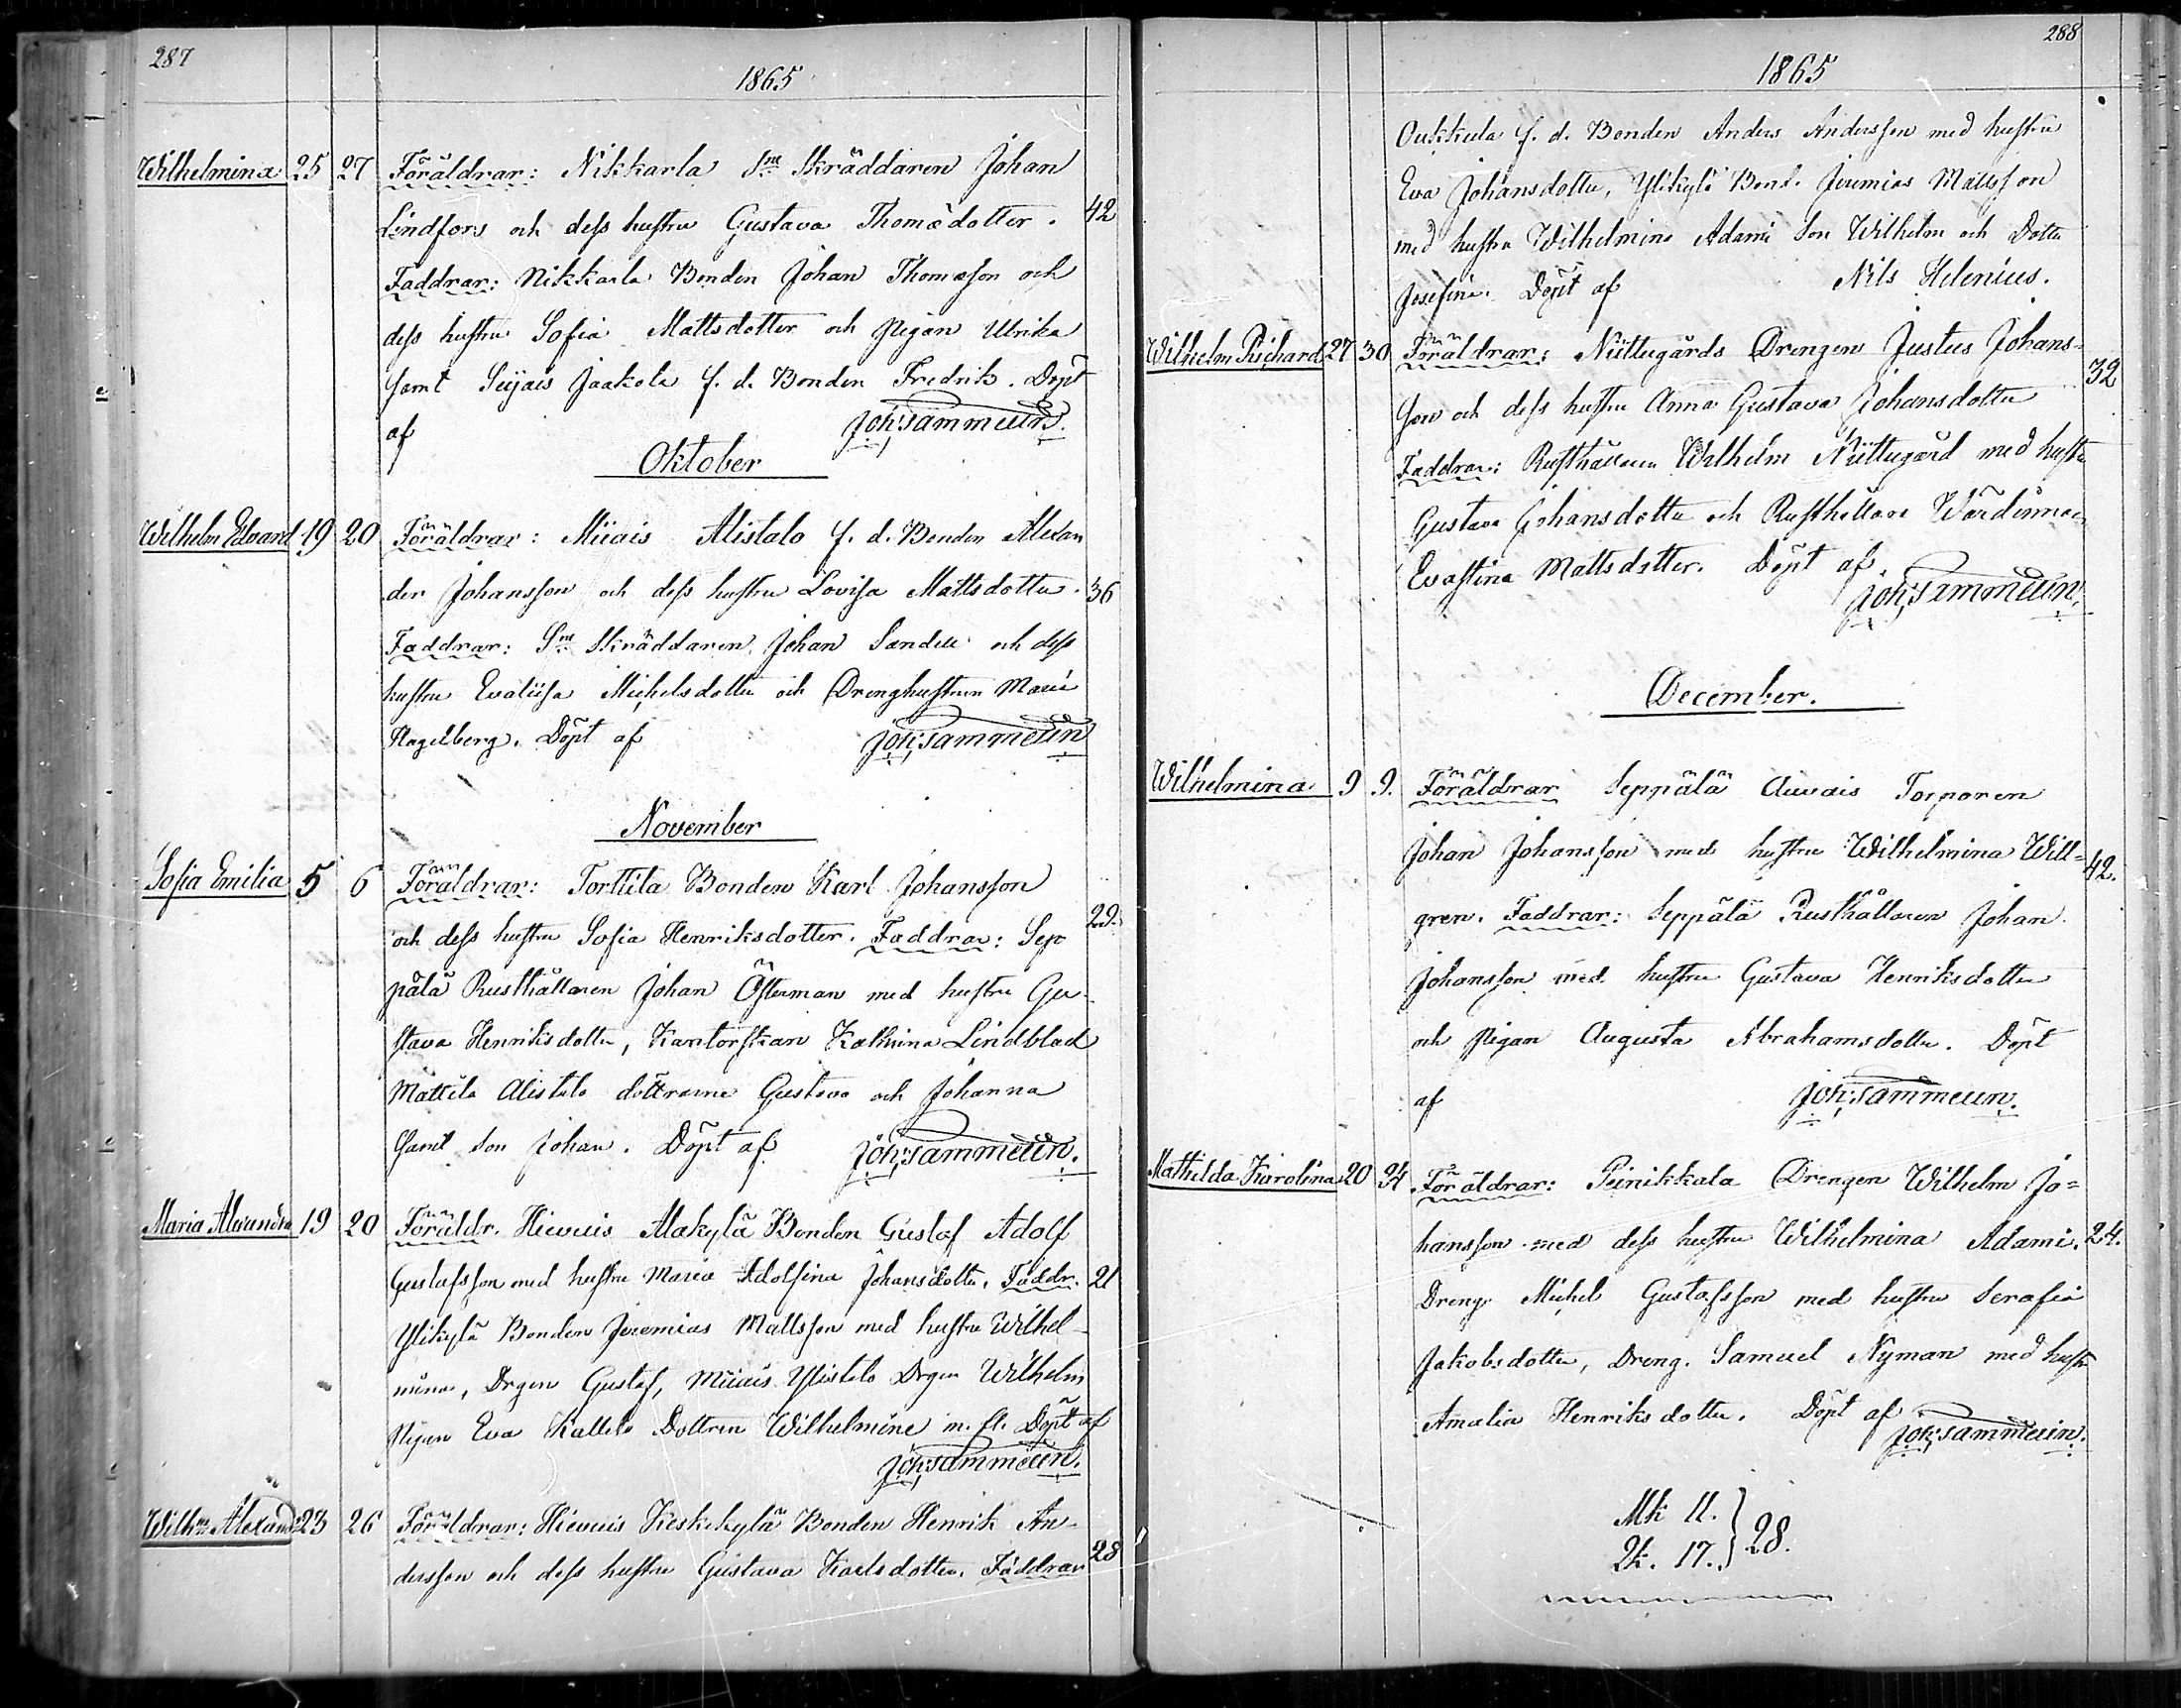 287
1865
Wilhelmina 25 27 Föräldrar: Nikkarla Sne Skräddaren Johan
Lindfors och dess hustru Gustava Thomædotter. 42
Faddrar: Nikkarla Bonden Johan Thomasson och
dess hustru Sofia Mattsdotter och Pigan Ulrika
samt Sujais Jaakola f. d. Bonden Fredrik. Döpt
af Joh: Sammeun.
Oktober
Wilhelm Edvard 19 20 Föräldrar: Miiais Alistalo f. d. Bonden Alexan
der Johansson och dess hustru Lovisa Mattsdotter. 36
Faddrar: Sne Skräddaren Johan Sandell och dess
hustru Evaliisa Michelsdotter och Drenghustrun Maria
Hagelberg. Döpt af Joh: Sammeun
November
Sofia Emilia 5 6 Föräldrar: Torttila Bonden Karl Johansson
och dess hustru Sofia Henriksdotter. Faddrar: Sep 29.
pälä Rusthållaren Johan Österman med hustru Gu-
stava Henriksdotter, Kantorskan Kathrina Lindblad
Mattila Alistalo döttrarne Gustava och Johanna
samt son Johan. Döpt af Joh: Sammeun.
Maria Alexandra 19 20 Föräldr. Hievuis Alakylä Bonden Gustaf Adolf
Gustafsson med hustru Maria Adolfina Johansdotter. Faddr. 21
Ylikylä Bonden Jeremias Mattsson med hustru Wilhel-
mina, Drgen Gustaf, Miiais Ylistalo Drgen Wilhelm
Pigan Eva Kallela Dottren Wilhelmine m. fl. Döpt af
Joh: Sammeun.
Wilhm Alexand. 23 26 Föräldrar: Hievuis Keskikylä Bonden Henrik An-
dersson och dess hustru Gustava Karlsdotter. Faddrar 28
288
1865
Oukkula f. d. Bonden Anders Andersson med hustru
Eva Johansdotter, Ylikylä Bond. Jeremias Mattsson
med hustru Wilhelmina Adami Son Wilhelm och Dotter
Josefina. Döpt af Nils Helenius.
Wilhelm Richard 27 30 Föräldrar: Niittugårds Drengen Justus Johans-
son och dess hustru Anna Gustava Johansdotter 32
Faddrar: Rusthållaren Wilhelm Niittugård med hustru
Gustava Johansdotter och Rusthållare Wärdinnan
Evastina Mattsdotter. Döpt af.
Joh: Sammeun.
December.
Wilhelmina 9 9. Föräldrar Seppälä Auvais Torparen
Johan Johansson med hustru Wilhelmina Will= 42.
gren. Faddrar: Seppälä Rusthållaren Johan
Johansson med hustru Gustava Henriksdotter
och Pigan Augusta Abrahamsdotter. Döpt
af Joh: Sammeun.
Mathilda Karolina 20 24 Föräldrar: Peinikkala Drengen Wilhelm Jo=
hansson med dess hustru Wilhelmina Adami. 24.
Dreng. Michel Gustafsson med hustru Serafia
Jakobsdotter, Dreng. Samuel Nyman med hustru
Amalia Henriksdotter. Döpt af
Joh: Sammeun.
Mk 11.
Qk. 17. } 28.